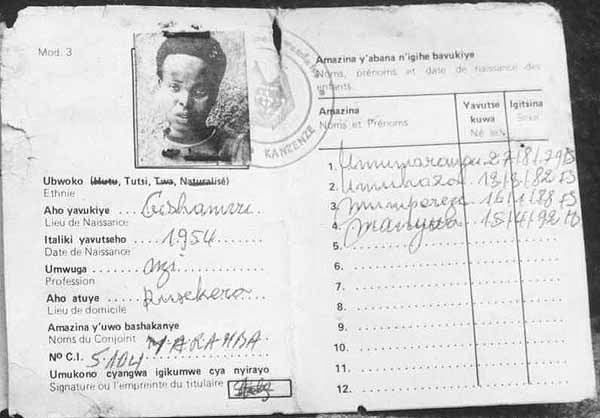 Mod. 3
KANZENZE
Ubwoko (Hutu, Tutsi, Twa, Naturalisé)
Ethnie
Aho yavukiye ....
Lieu de Naissance
Italiki yavutseho ... 1954
Date de Naissance
Umwuga ...
Profession
Aho atuye ... Rusekera
Lieu de domicile
Amazina y'uwo bashakanye
Noms du Conjoint YARAMBA
N° C.I. 5.104
Umukono cyangwa igikumwe cya nyirayo
Signature ou l'empreinte du titulaire
Amazina y'abana n'igihe bavukiye
Noms, prénoms et date de naissance des enfants.
Amazina
Noms et Prénoms
Yavutse kuwa
Né le
Igitsina
Sexe
1. 27/8/79
2. Umuhaza 13/3/82 FS
3. 16/1/88 FS
4. 15/4/92
5.
6.
7.
8.
9.
10.
11.
12.